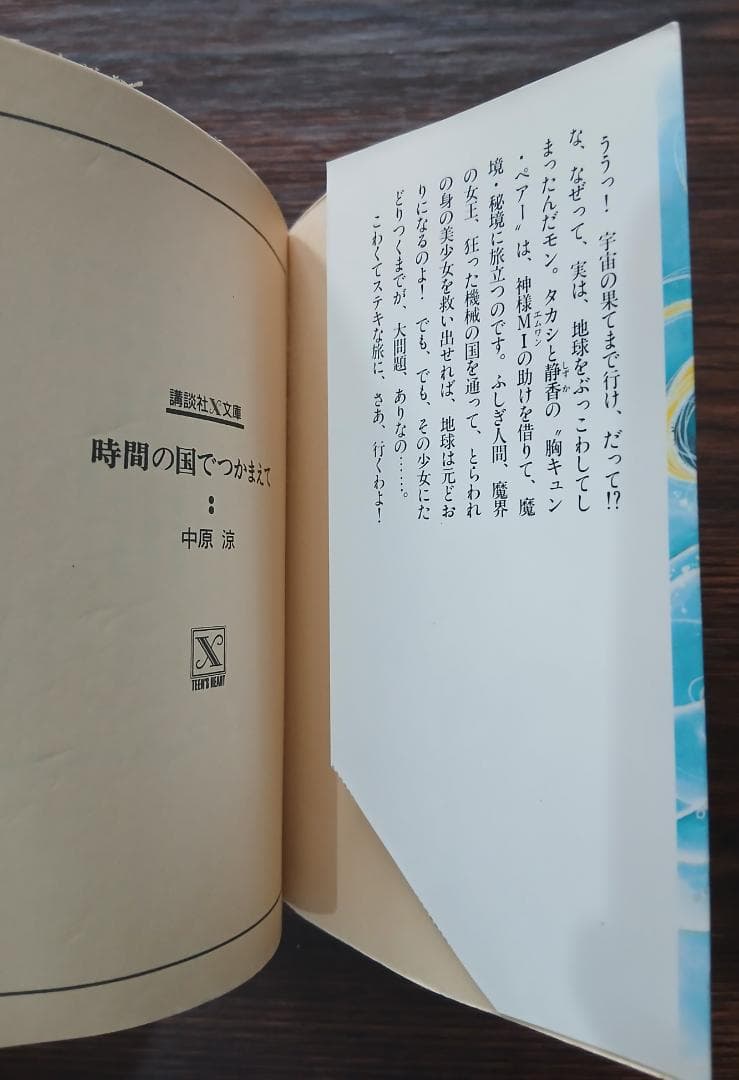 講談社X文庫
時間の国でつかまえて
中原 涼
X
TEEN'S HEART
ううっ！ 宇宙の果てまで行け、だって!?
な、なぜって、実は、地球をぶっこわしてし
まったんだモン。タカシと静香の〝胸キュン
・ペアー〟は、神様M1の助けを借りて、魔
境・秘境に旅立つのです。ふしぎ人間、魔界
の女王、狂った機械の国を通って、とらわれ
の身の美少女を救い出せれば、地球は元どお
りになるのよ！ でも、でも、その少女にた
どりつくまでが、大問題、ありなの……。
こわくてステキな旅に、さあ、行くわよ！
しずか
エムワン